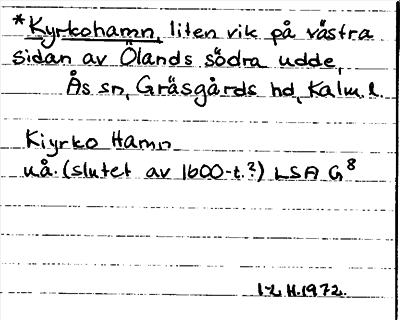 *Kyrkohamn, liten vik på västra
sidan av Ölands södra udde,
Ås sn, Gräsgårds hd, Kalm. l.
Kiyrko Hamn
u.å. (slutet av 1600-t.?) LSA G8
1972.